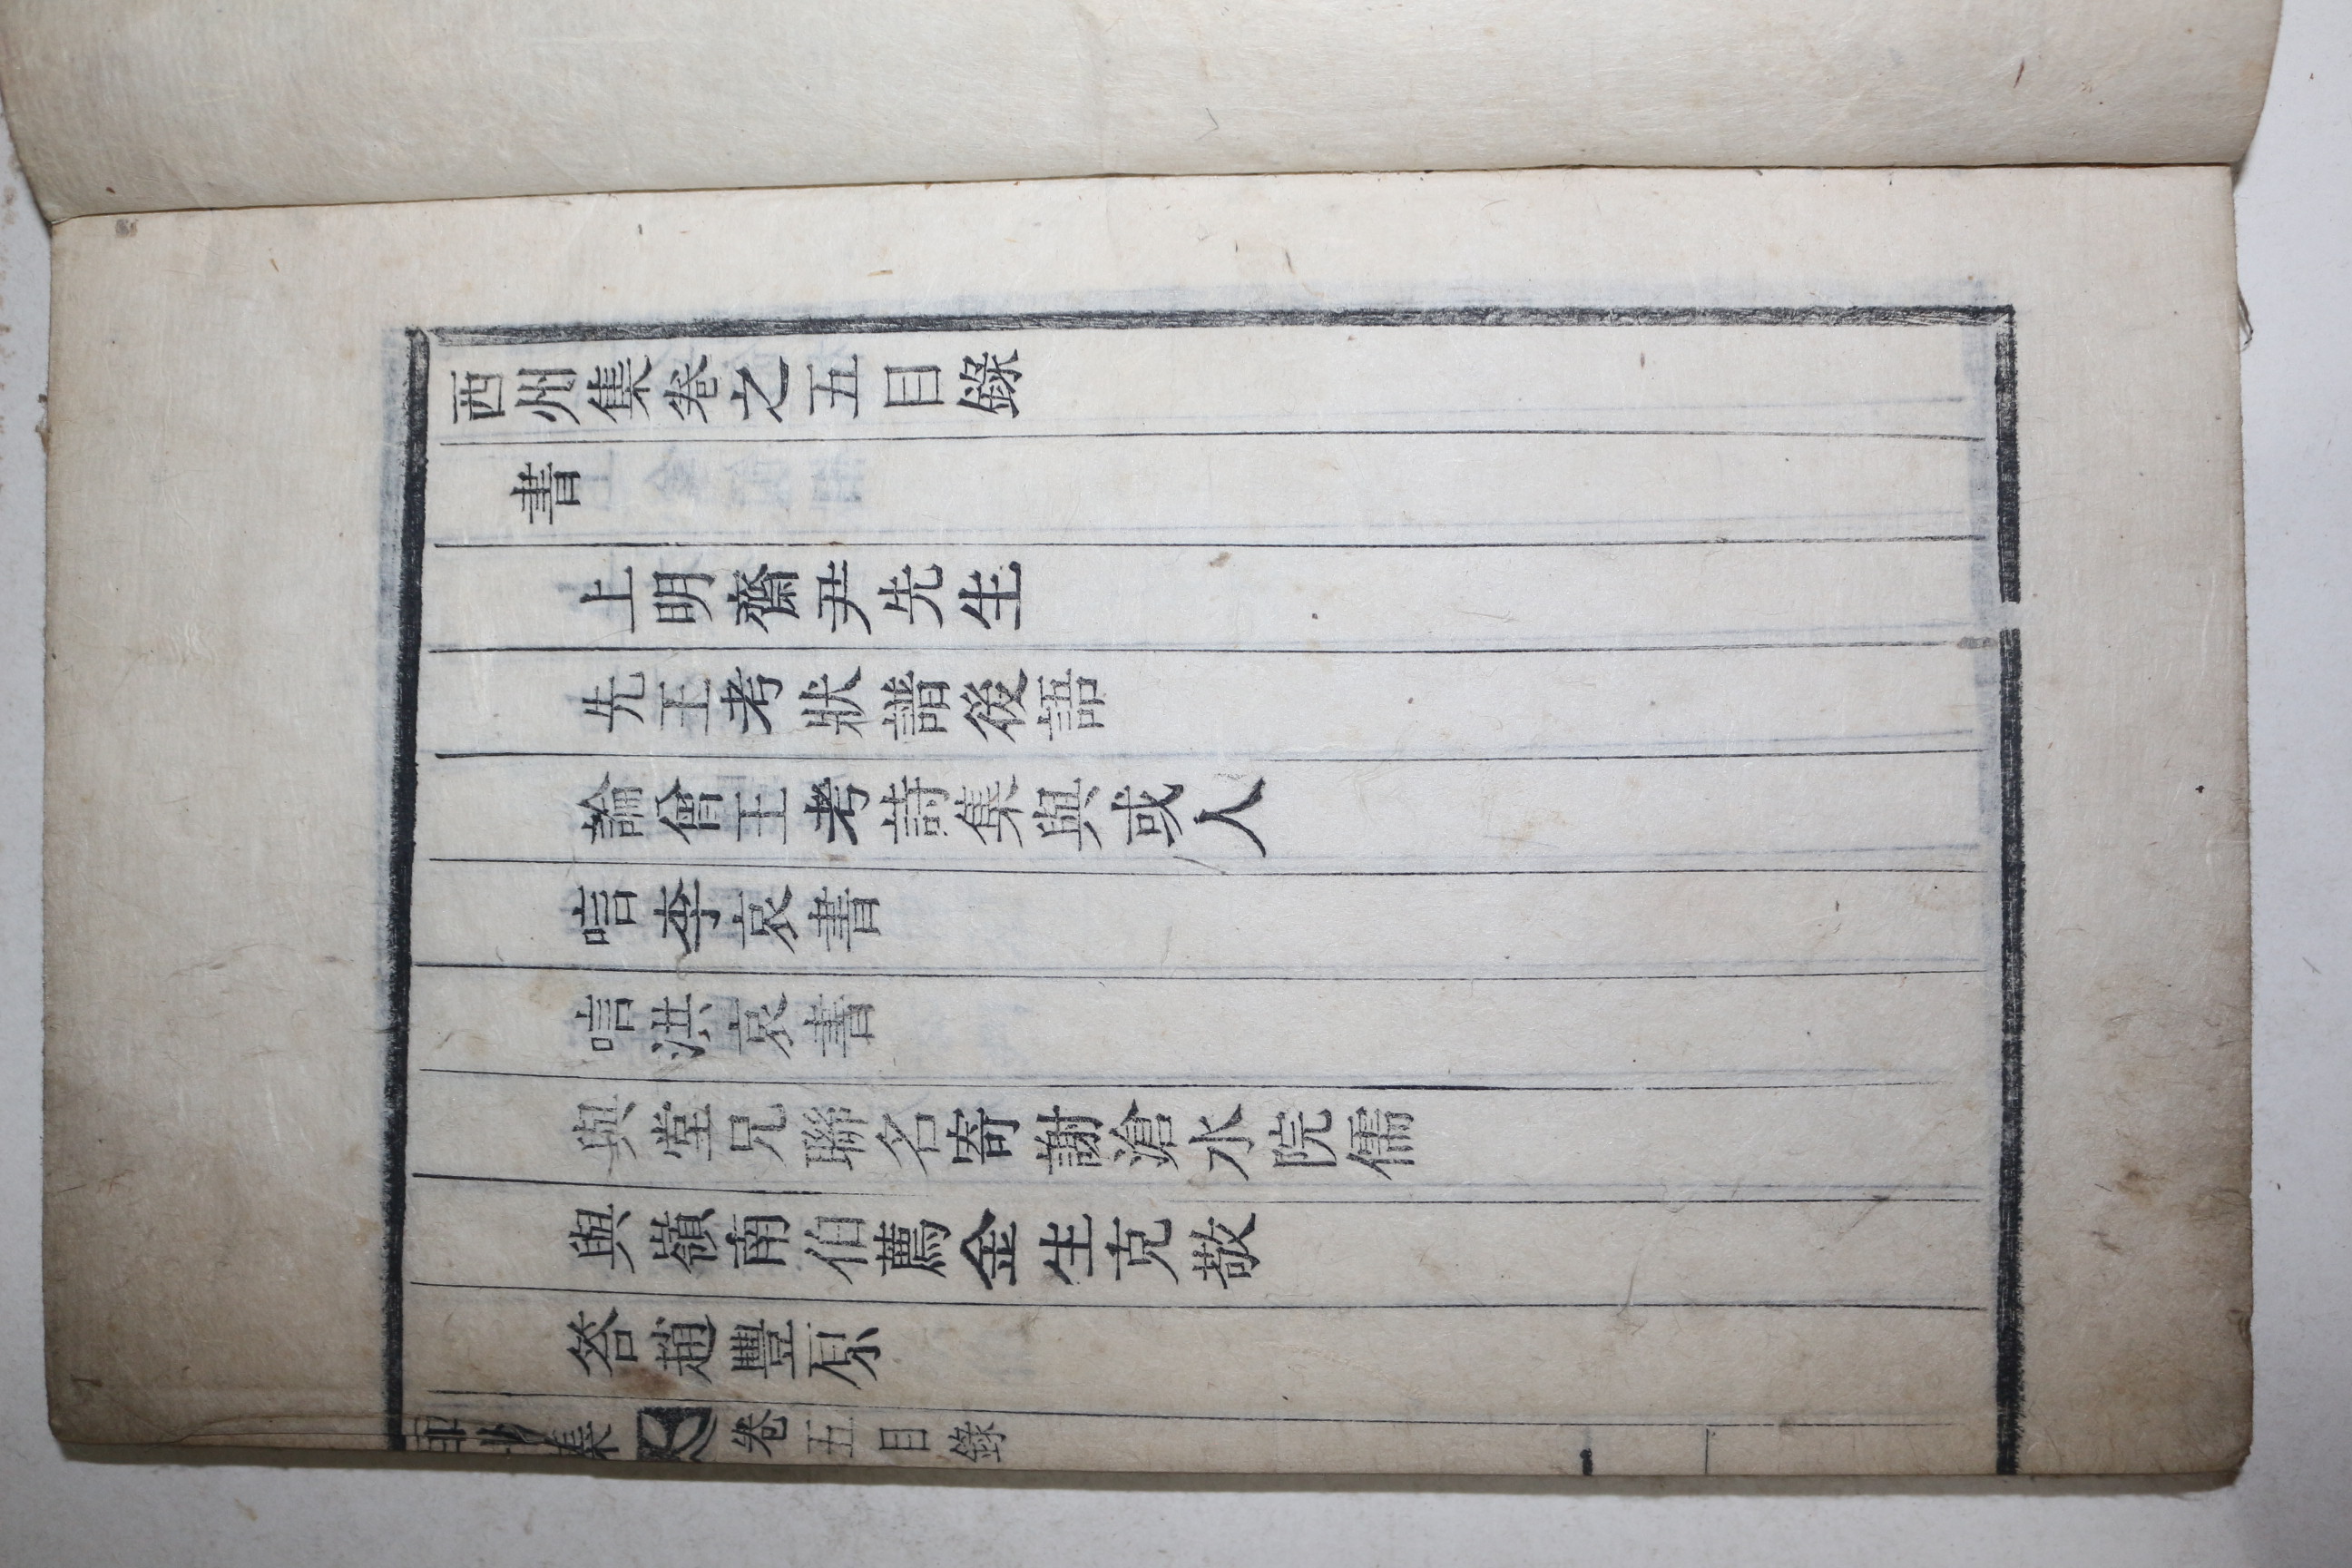 西州集卷之五目錄
書
上明齋尹先生
先王考狀譜後語
論曾王考詩集與或人
唁李哀書
唁洪哀書
與堂兄聯名寄謝滄水院儒
與嶺南伯薦金生克敬
答趙豐原
西州集 卷五目錄